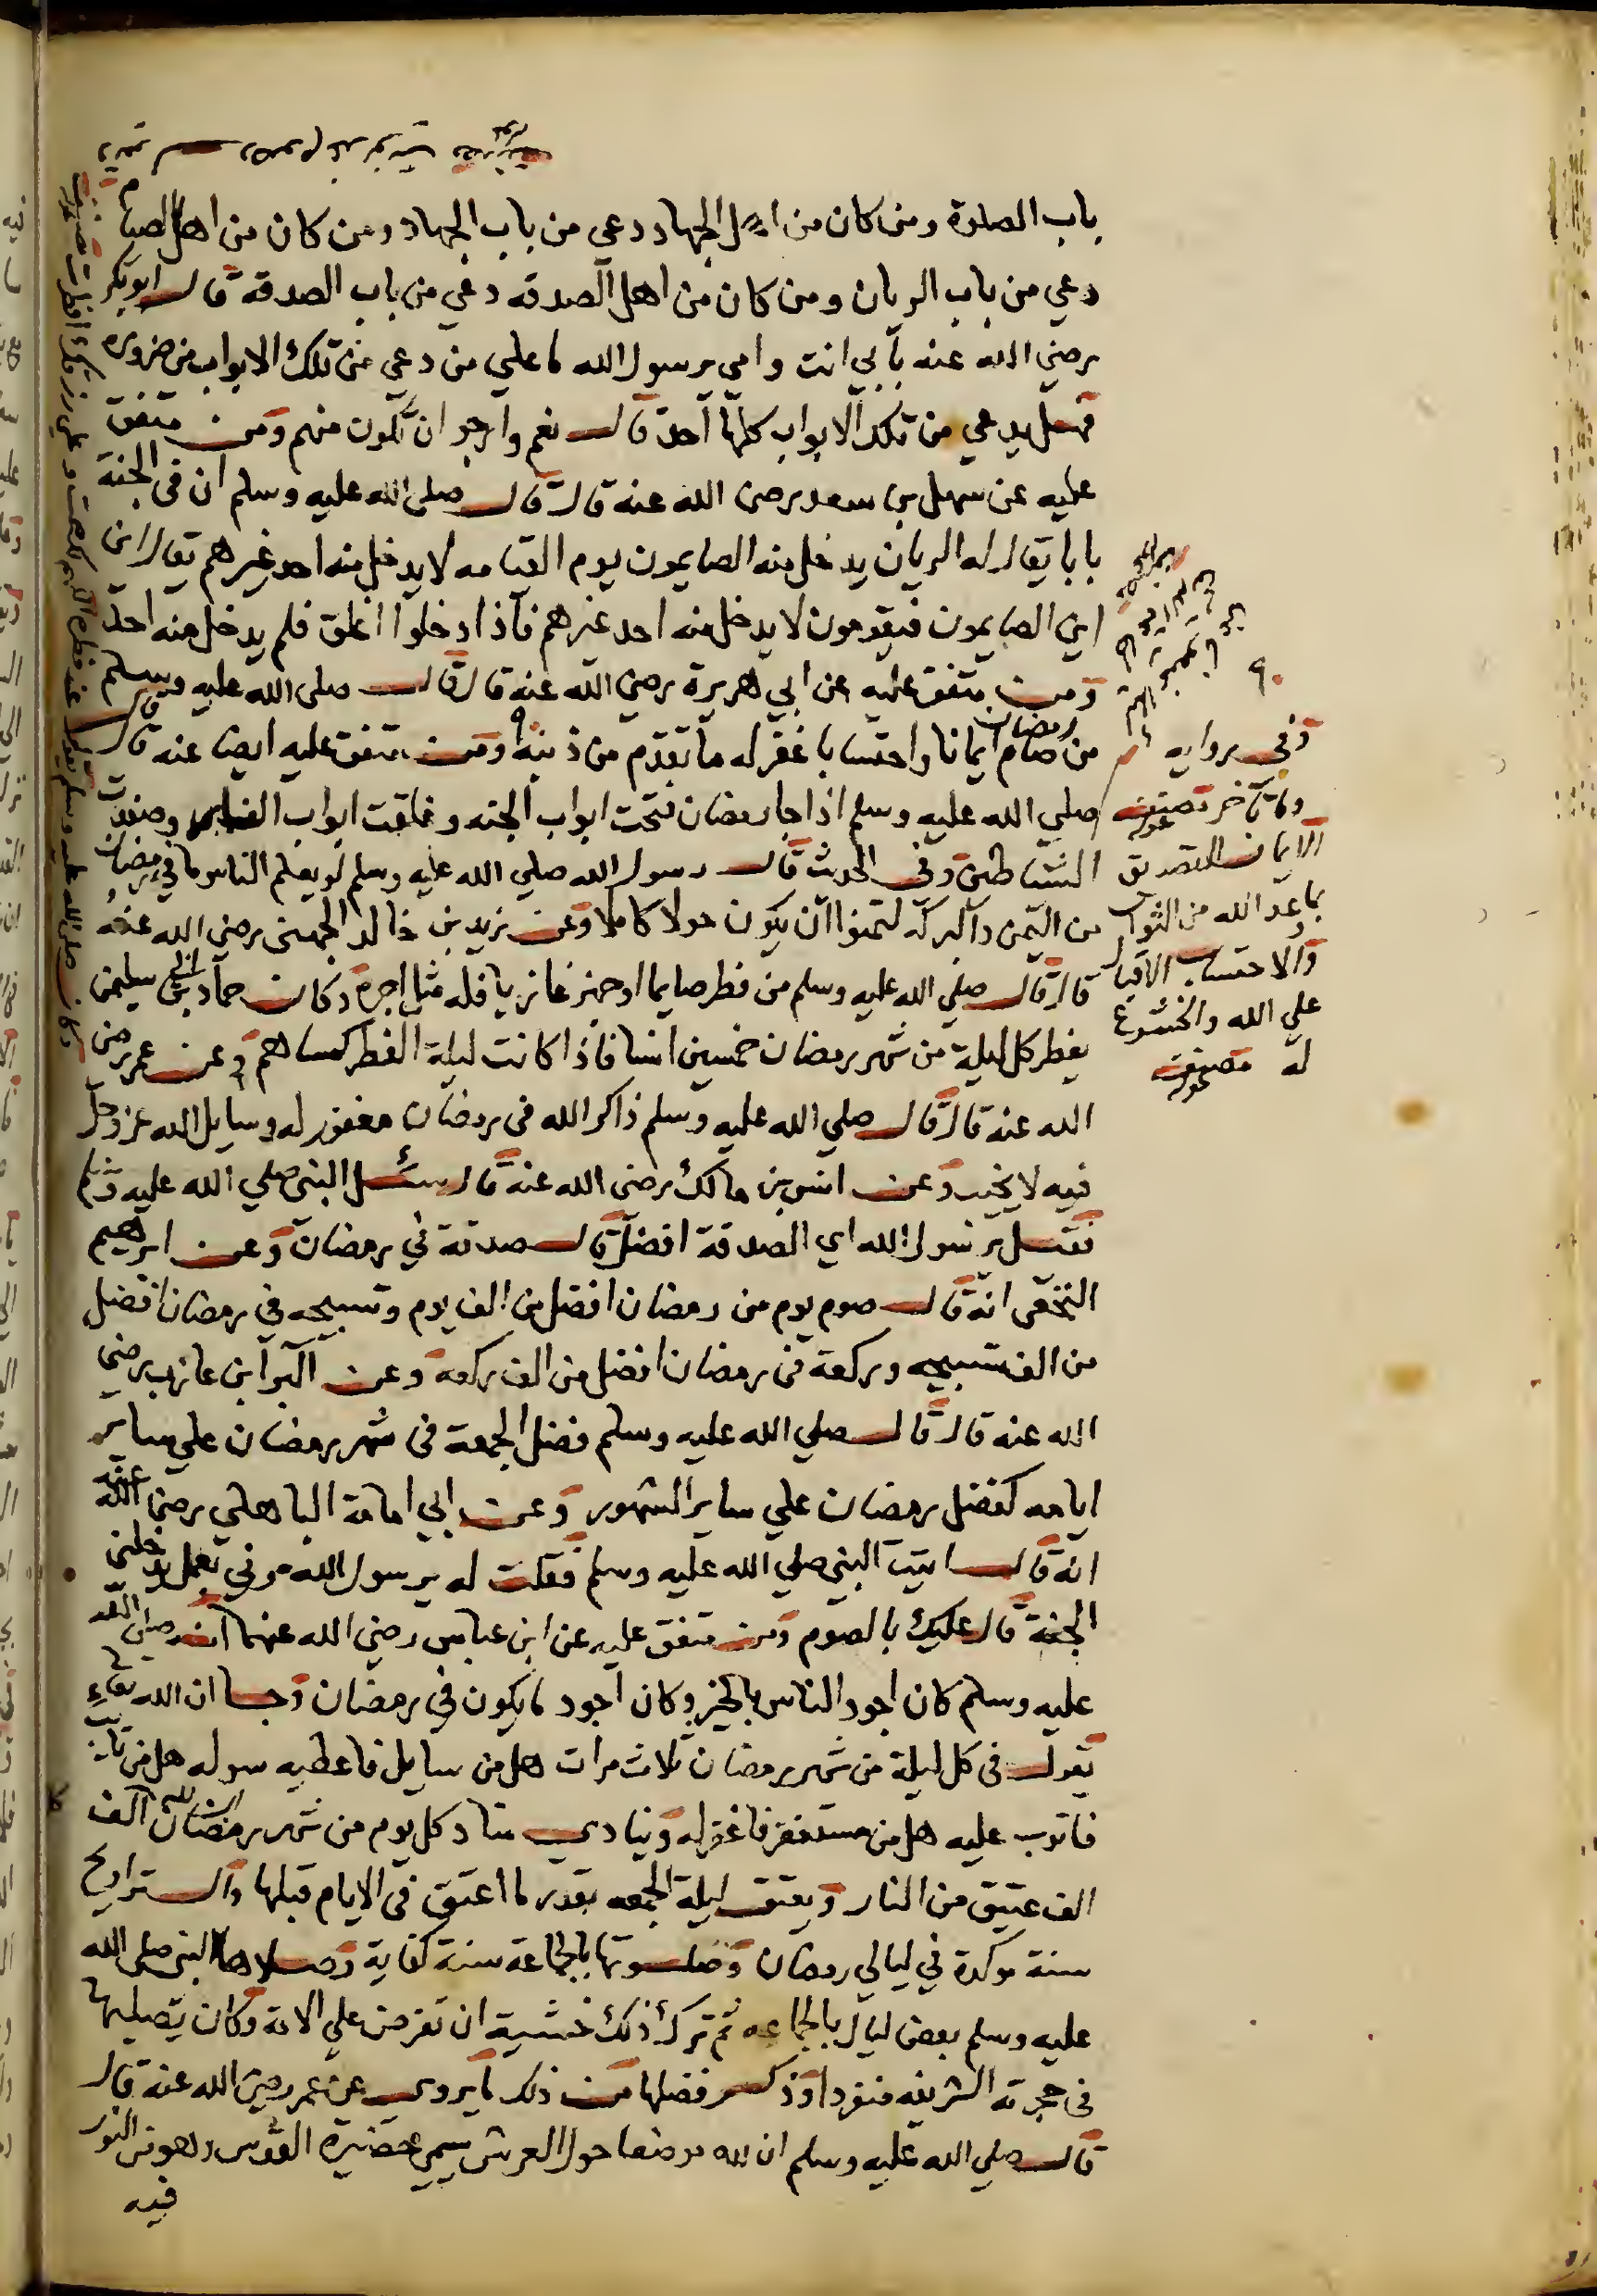 باب الصلوة ومن كان من اهل الجهاد دعي من باب الجهاد ومن كان من اهل الصيام
دعي من باب الريان ومن كان من اهل الصدقه دعي من باب الصدقة قال ابو بكر
رضي الله عنه بابي انت وامي يرسول الله ما علي من دعي من تلك الابواب من ضروره
فهل يدعي من تلك الابواب كلها احد قال نعم وارجو ان تكون منهم ومن متفق
عليه عن سهل بن سعد رضى الله عنه قال قال صلى الله عليه وسلم ان في الجنة
بابا يقال له الريان يدخل منه الصايمون يوم القيامه لا يدخل منه احد غيرهم يقال اين
اين الصايمون فيقومون لا يدخل منه احد غيرهم فاذا دخلوا اغلق فلم يدخل منه احد
ومن متفق عليه عن ابي هريرة رضي الله عنه قال قال صلى الله عليه وسلم
من صام رمضان ايمانا واحتسابا غفر له ما تقدم من ذنبه ومن متفق عليه ايضا عنه قال قال
صلي الله عليه وسلم اذا جا رمضان فتحت ابواب الجنه وغلقت ابواب النار وصفدت
الشياطين وفي الحديث قال رسول الله صلي الله عليه وسلم لو يعلم الناس ما في رمضان
من اليمن والبركه لتمنوا ان يكون حولا كاملا وعن زيد بن خالد الجهني رضي الله عنه
قال قال صلي الله عليه وسلم من فطر صايما او جهز غازيا فله مثل اجره وكان حماد بن ابي سليمن
يفطر كل ليلة من شهر رمضان خمسين انسا فاذا كانت ليلة الفطر كساهم وعن عمر رضي
الله عنه قال قال صلي الله عليه وسلم ذاكر الله في رمضان مغفور له وسايل الله عز وجل
فيه لا يخيب وعن انس بن مالك رضي الله عنه قال سئل النبي صلي الله عليه وسلم
فقيل يرسول الله اي الصدقة افضل قال صدقة في رمضان وعن ابرهيم
النخعي انه قال صوم يوم من رمضان افضل من الف يوم وتسبيحه في رمضان افضل
من الف تسبيحه وركعة في رمضان افضل من الف ركعه وعن البرا بن عازب رضي
الله عنه قال قال صلي الله عليه وسلم فضل الجمعة في شهر رمضان علي ساير
ايامه كفضل رمضان علي ساير الشهور وعن ابي امامة الباهلي رضي الله عنه
انه قال اتيت النبي صلي الله عليه وسلم فقلت له يرسول الله مرني بعمل يدخلني
الجنة قال عليك بالصوم ومن متفق عليه عن ابن عباس رضي الله عنهما انه صلى الله
عليه وسلم كان اجود الناس بالخير وكان اجود ما يكون في رمضان وجا ان الله تعالي
يقول في كل ليلة من شهر رمضان ثلاث مرات هل من سايل فاعطيه سوله هل من تايب
فاتوب عليه هل من مستغفر فاغفر له وينادي مناد كل يوم من شهر رمضان ان لله الف
الف عتيق من النار ويعتق ليلة الجمعه بقدر ما اعتق في الايام قبلها والتراويح
سنة موكدة في ليالي رمضان وصلوتها بالجماعة سنة كفاية وصلاها النبي صلى الله
عليه وسلم بعض ليال بالجماعه ثم ترك ذلك خشية ان تفرض علي الامة وكان يصليها
في حجرته الشريفه منفردا وذكر فضلها من ذلك ما يروى عن عمر رضي الله عنه قال
قال صلي الله عليه وسلم ان لله موضعا حول العرش يسمي حضيرة القدس وهو من النور
فيه
وفي روايه
وما تاخر
الايمان التصديق
بما عد الله من الثواب
والاحتساب الاقبال
علي الله والخشوع
له